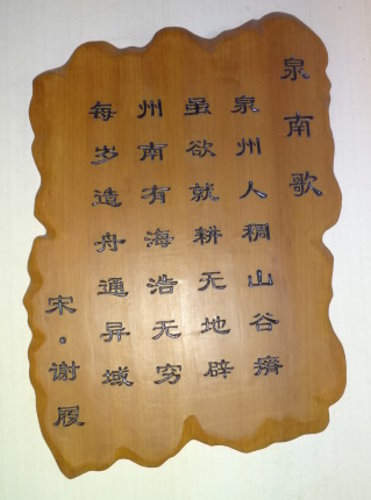 泉南歌
泉州人稠山谷瘠
虽欲就耕无地辟
州南有海浩无穷
每岁造舟通异域
宋·谢履